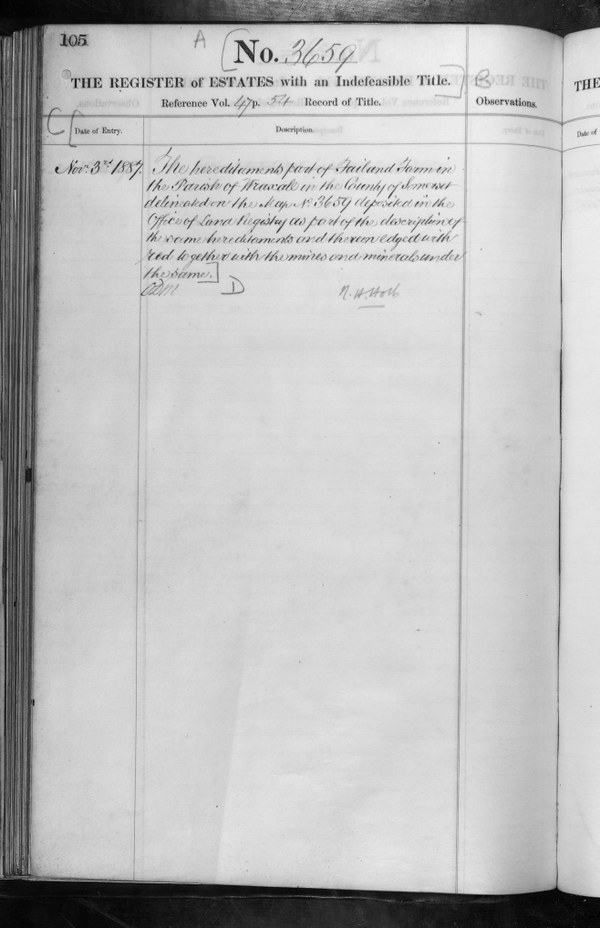 105
A
No. 3659
THE REGISTER of ESTATES with an Indefeasible Title.
B
Reference Vol. 47 p. 54 Record of Title.
Observations.
C
Date of Entry.
Description.
Novr 3rd 1887.
The hereditaments part of Failand Farm in
the Parish of Wraxall in the County of Somerset
delineated on the Map No. 3659 deposited in the
Office of Land Registry as part of the description of
the same hereditaments and thereon edged with
red together with the mines and minerals under
the same.
D
R. H. Holt
THE
Date of